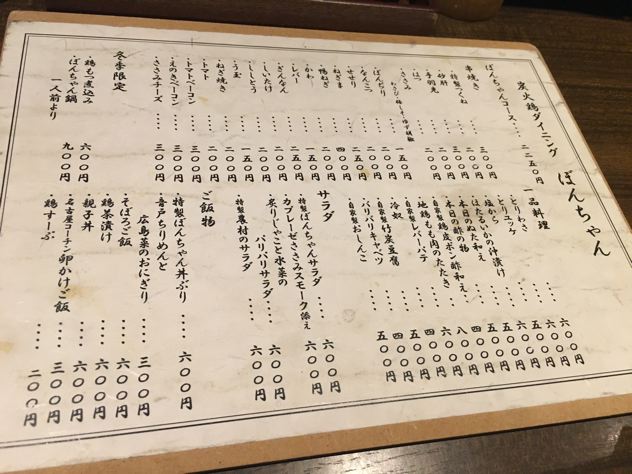 炭火鶏ダイニング ぼんちゃん
ぼんちゃんコース‥‥二二五〇円
串焼き
・特製つくね‥‥三〇〇円
・砂肝‥‥二〇〇円
・手羽先‥‥
・はつ‥‥二〇〇円
・ささみ
わさび・梅しそ・ゆず胡椒
・ぼんじり‥‥
・なんこつ‥‥二〇〇円
・せせり‥‥二〇〇円
・ねぎま‥‥
・鴨ねぎ‥‥四〇〇円
・かわ‥‥
・レバー‥‥
・ぎんなん‥‥
・しいたけ‥‥
・ししとう‥‥
・うずら‥‥
・ねぎ焼き‥‥
・トマト‥‥二〇〇円
・トマトベーコン‥‥三〇〇円
・えのきベーコン‥‥三〇〇円
・ささみチーズ‥‥三〇〇円
冬季限定
・鶏もつ煮込み‥‥六〇〇円
・ぼんちゃん鍋
一人前より‥‥九〇〇円
一品料理
・とりわさ‥‥六〇〇円
・とりユッケ‥‥六〇〇円
・ほたるいかの沖漬け
・塩から
・本日のぬた和え
・本日の酢の物
・自家製鶏皮ポン酢和え
・地鶏もも肉のたたき
・自家製レバーパテ
・自家製竹炭豆腐
・冷奴‥‥四〇〇円
・パリパリキャベツ
・自家製おしんこ‥‥五〇〇円
サラダ
・特製ぼんちゃんサラダ‥‥六〇〇円
・カプレーゼささみスモーク添え‥‥六〇〇円
・炙りじゃこと水菜の
パリパリサラダ‥‥六〇〇円
・特製農村のサラダ‥‥六〇〇円
ご飯物
・特製ぼんちゃん丼ぶり‥‥六〇〇円
・音戸ちりめんと
広島菜のおにぎり‥‥三〇〇円
・そぼろご飯‥‥六〇〇円
・鶏茶漬け‥‥六〇〇円
・親子丼‥‥六〇〇円
・名古屋コーチン卵かけご飯‥‥三〇〇円
・鶏すーぷ‥‥二〇〇円